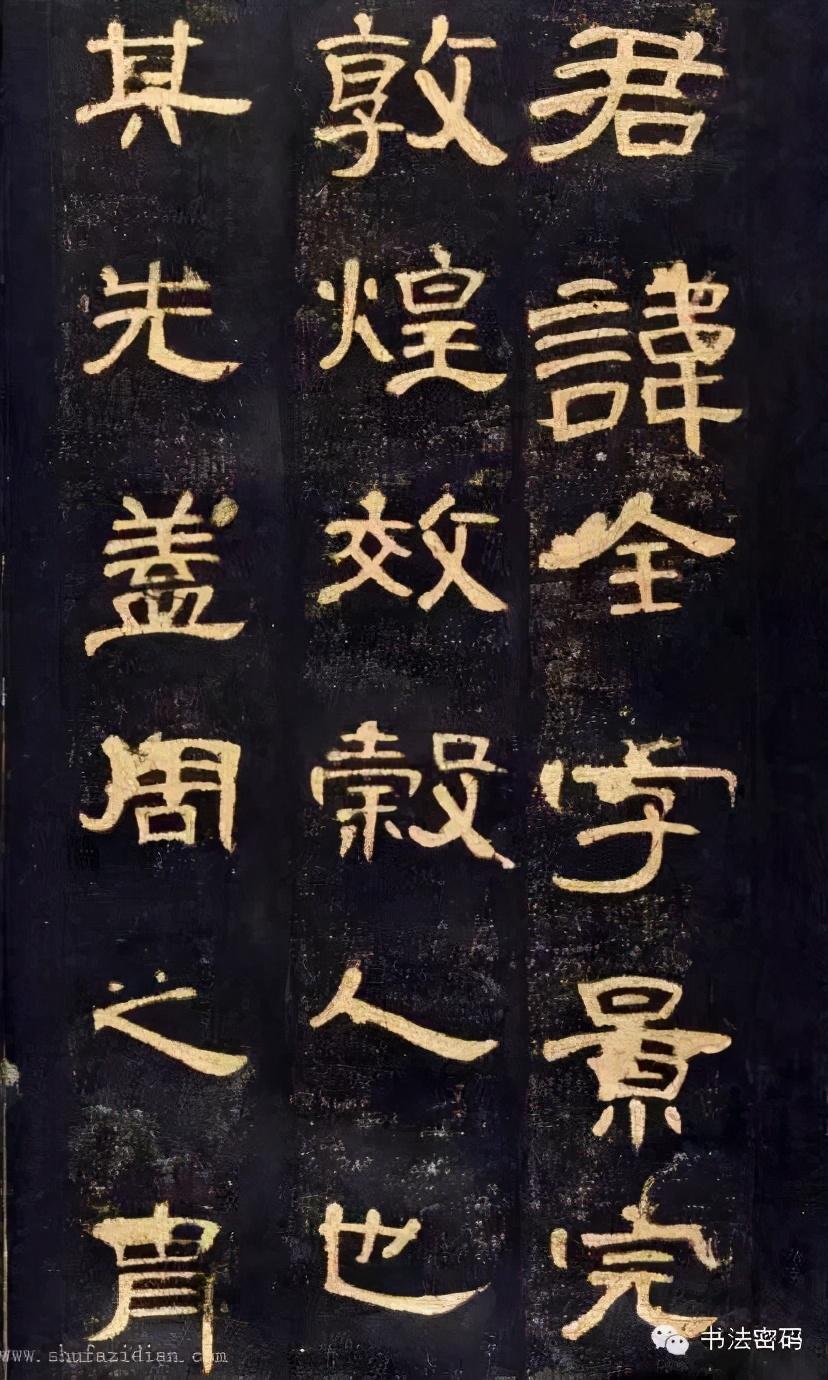 君諱全字景完
敦煌效穀人也
其先蓋周之胄
书法密码
www.shufazidian.com